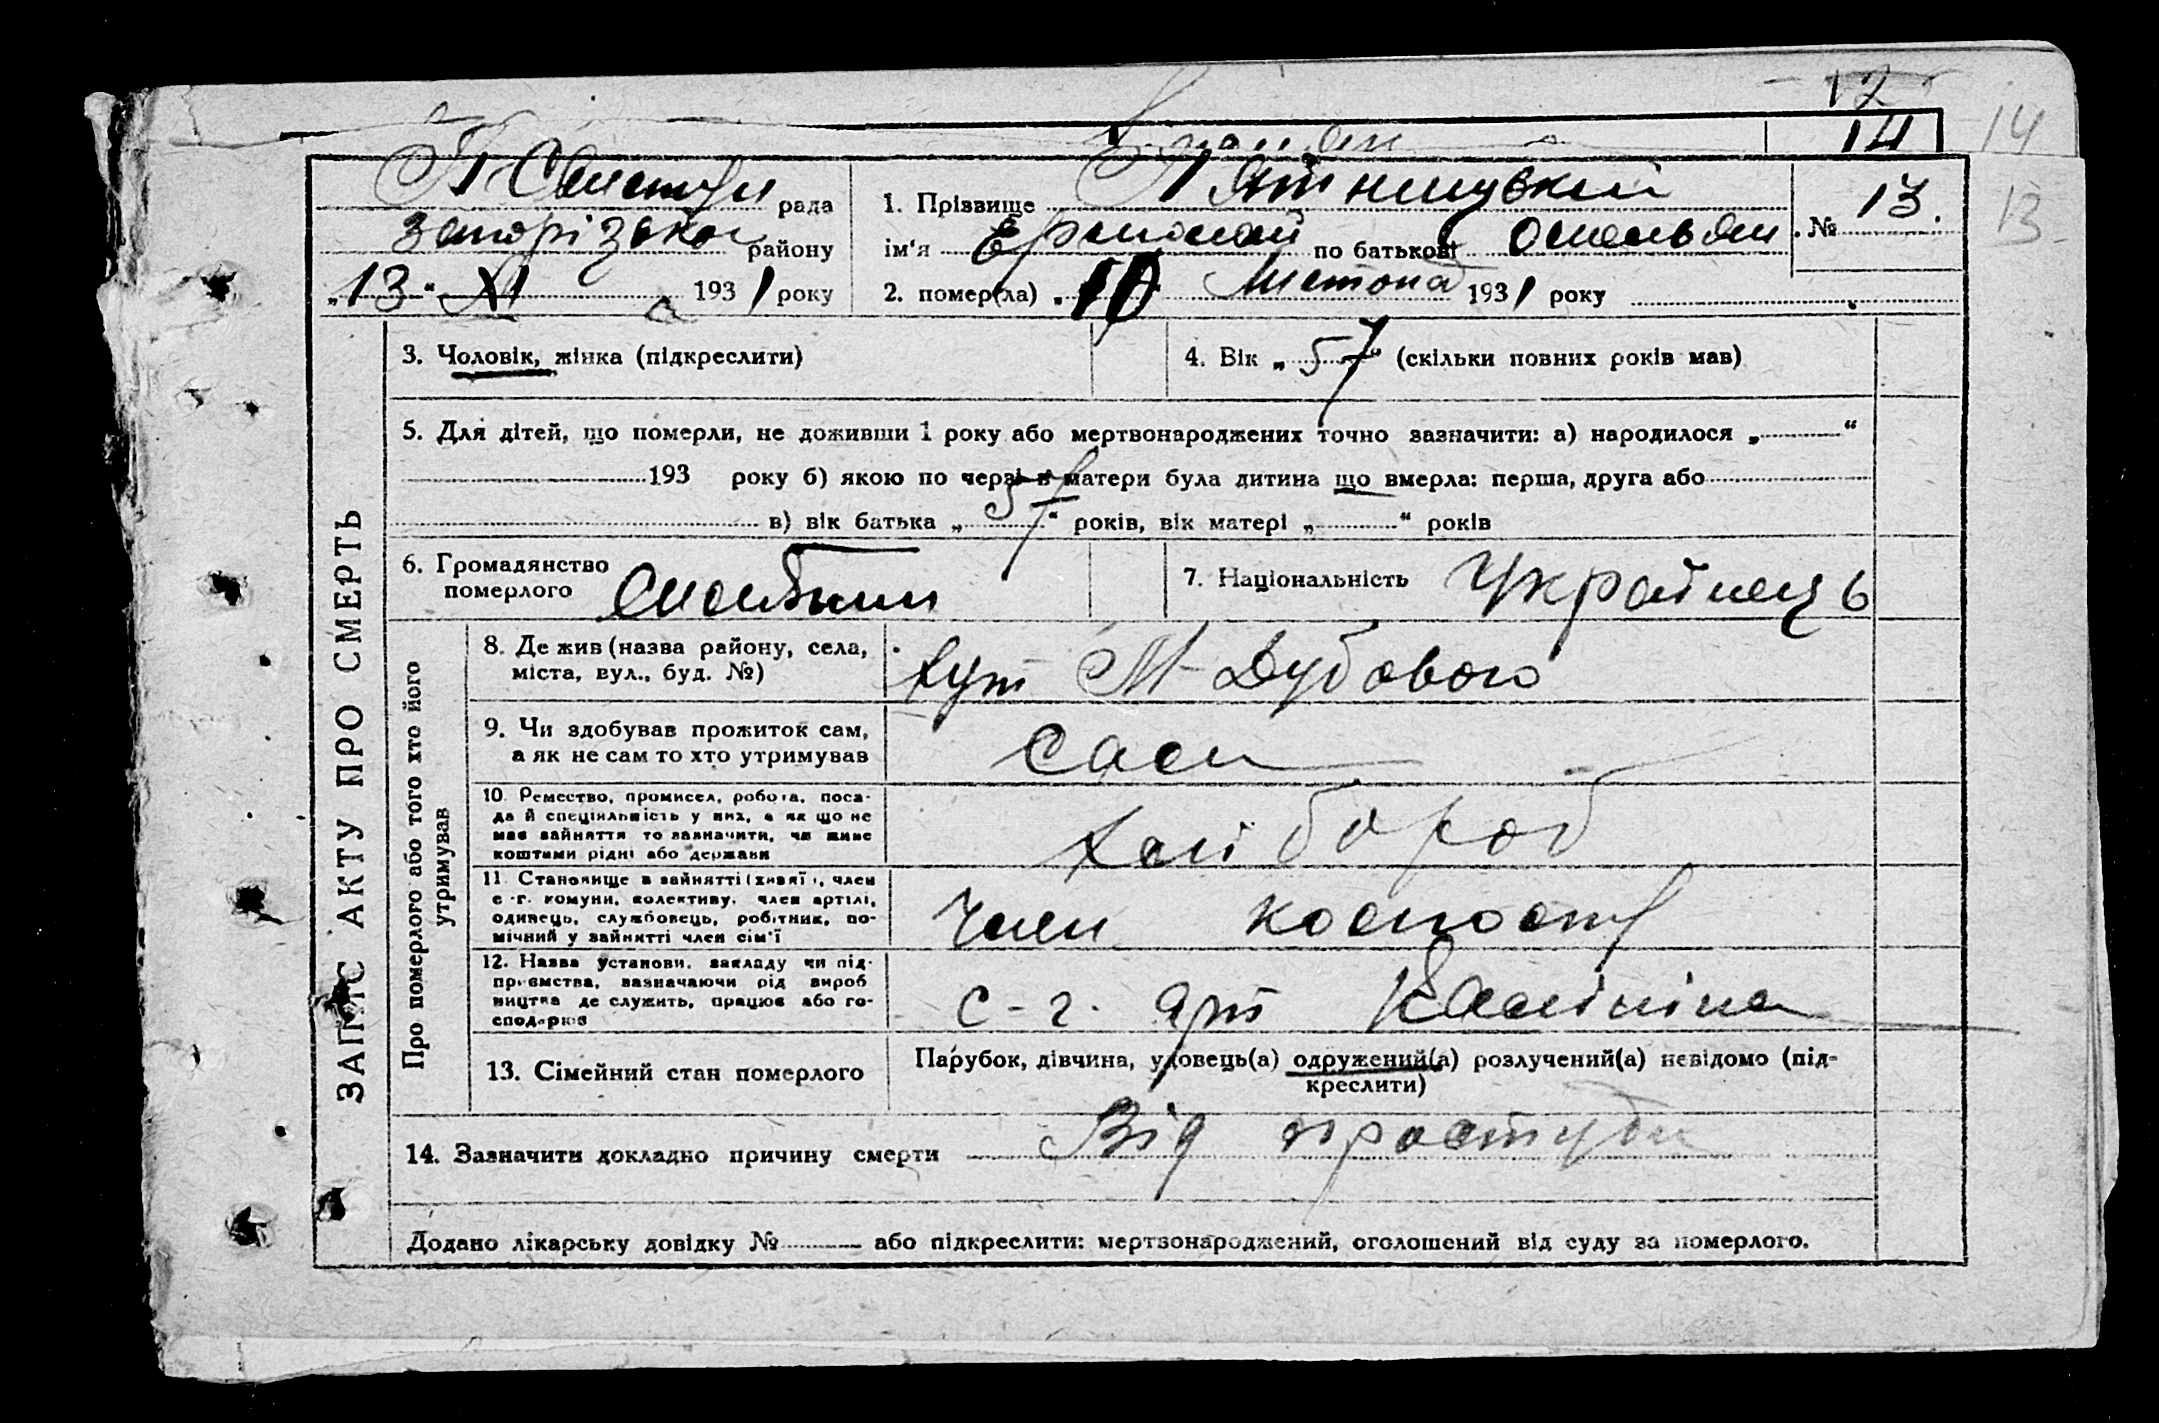 12
14
14
рада
1. Прізвище П'ятницький
№ 13.
13
Запорізької району
ім'я по батькові Омельян
„13“ XI 1931 року
2. помер(ла) „10“ Листопад 1931 року
3. Чоловік, жінка (підкреслити)
4. Вік „57“ (скільки повних років мав)
5. Для дітей, що померли, не доживши 1 року або мертвонароджених точно зазначити: а) народилося „ “
193 року б) якою по черзі в матери була дитина що вмерла: перша, друга або
в) вік батька „57“ років, вік матері „ “ років
6. Громадянство
померлого
7. Національність Українець
ЗАПИС АКТУ ПРО СМЕРТЬ
Про померлого або того хто його
утримував
8. Де жив (назва району, села,
міста, вул., буд. №)
хут М-Дубового
9. Чи здобував прожиток сам,
а як не сам то хто утримував
сам
10. Ремество, промисел, робота, поса-
да й спеціяльність у них, а як що не
мав зайняття то зазначити, чи живе
коштами рідні або держави
хлібороб
11. Становище в зайнятті (хазяї), член
с.-г. комуни, колективу, член артілі,
одинець, службовець, робітник, по-
мічний у зайнятті член сім'ї
Член
12. Назва установи, закладу чи під-
приємства, зазначаючи рід вироб
ництва де служить, працює або го-
сподарює
с-г. арт Калініна
13. Сімейний стан померлого
Парубок, дівчина, удовець(а) одружений(а) розлучений(а) невідомо (під-
креслити)
14. Зазначити докладно причину смерти Від простуди
Додано лікарську довідку № або підкреслити: мертвонароджений, оголошений від суду за померлого.